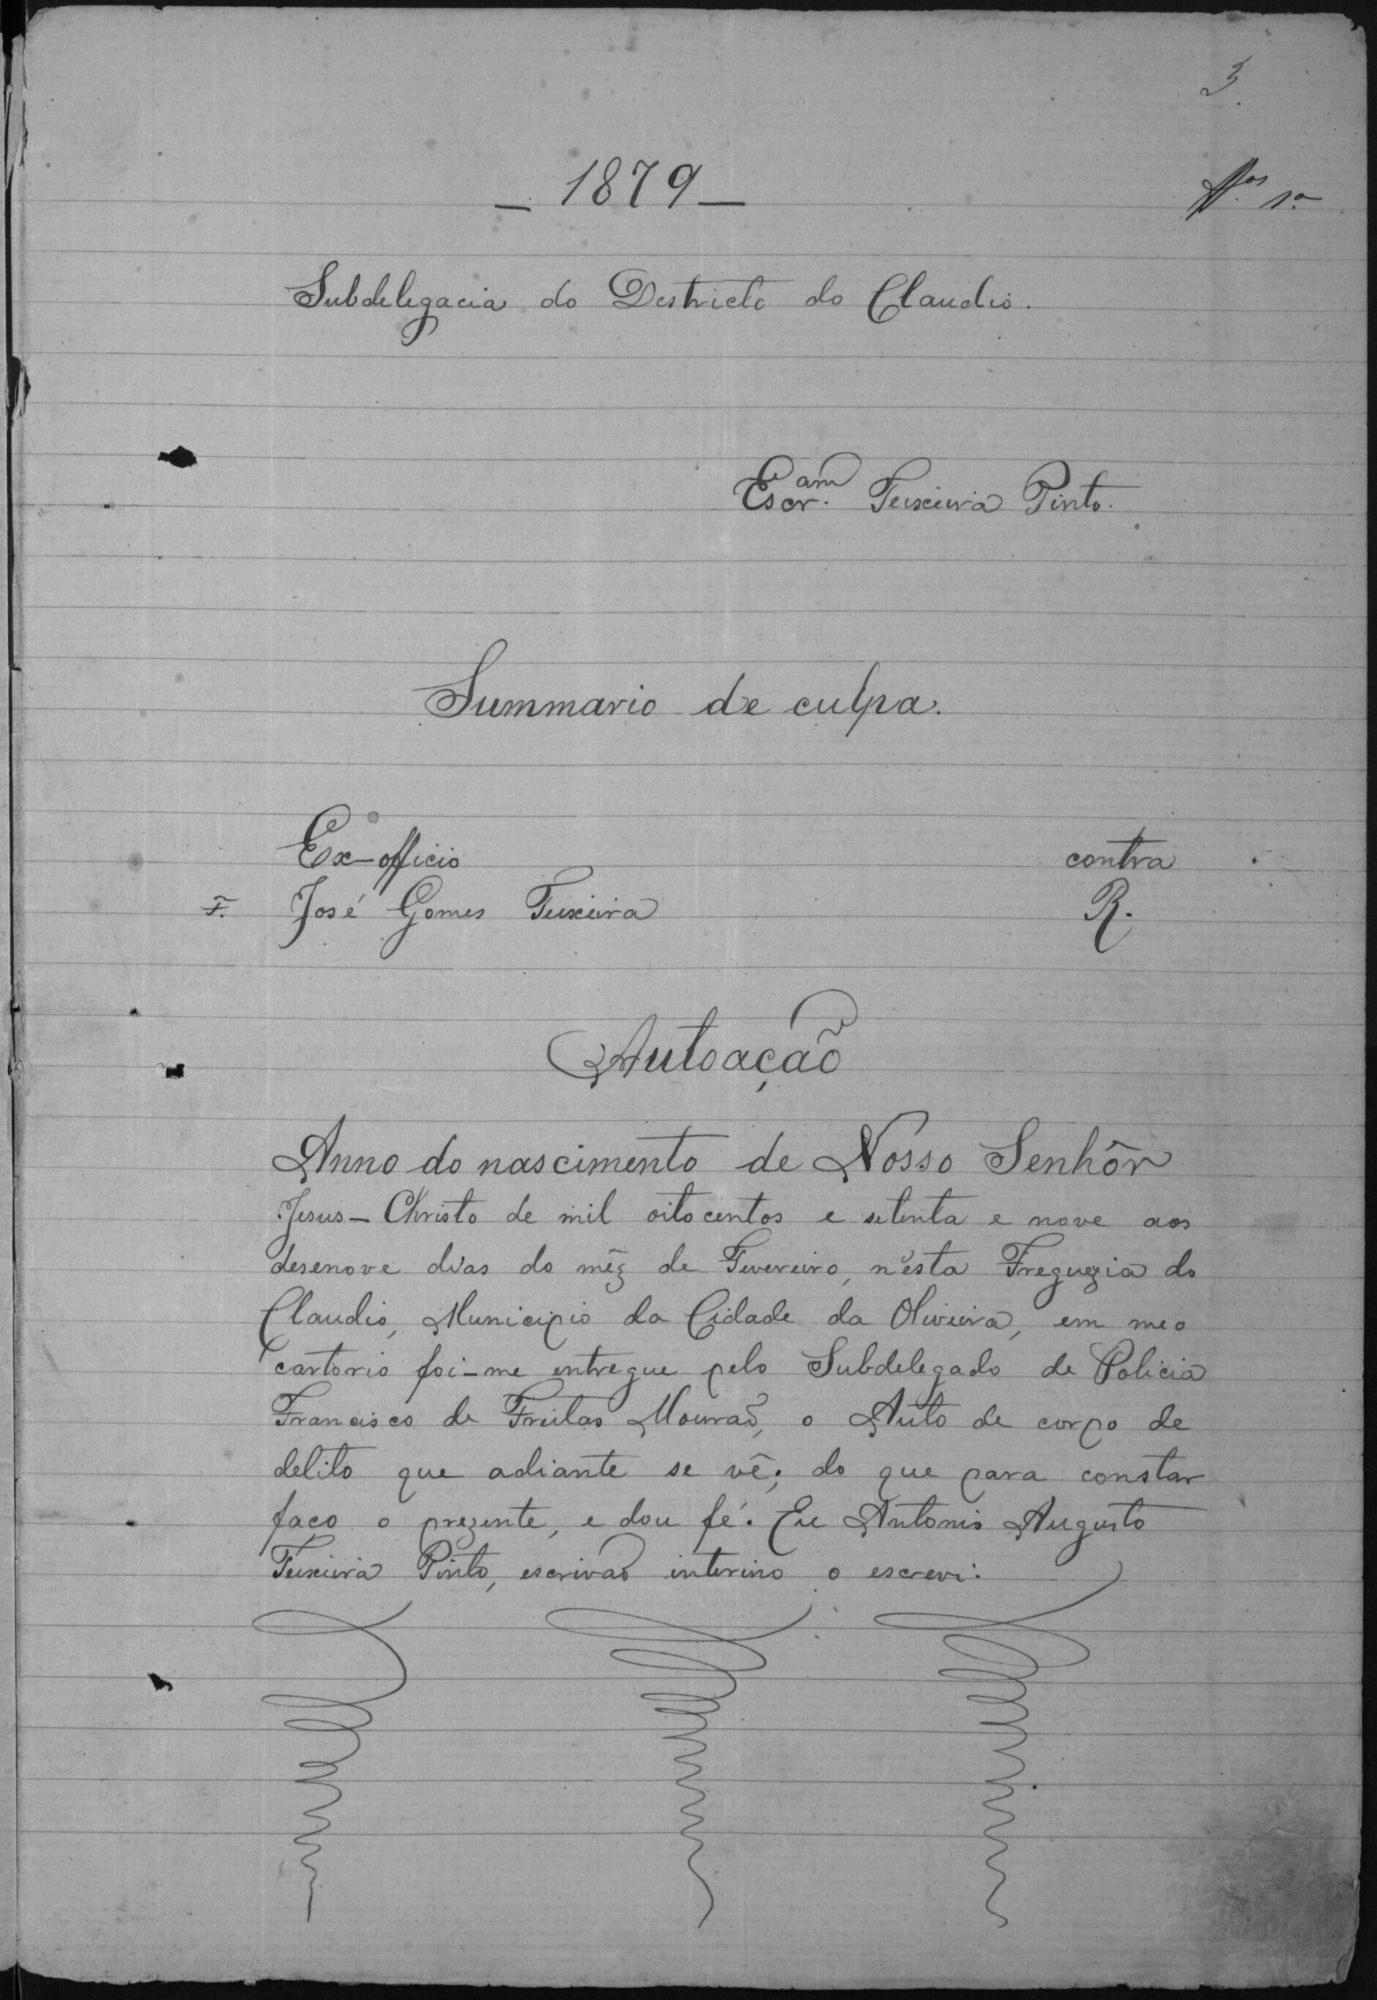 3
_ 1879 _
Fos. 1o
Subdelegacia do Destricto do Claudio.
Escram. Teixeira Pinto.
Summario de culpa.
Ex-officio contra
F. José Gomes Teixeira R.
Autoação
Anno do nascimento de Nosso Senhôr
Jesus-Christo de mil oitocentos e setenta e nove aos
desenove dias do mêz de Fevereiro, n'esta Freguezia do
Claudio, Municipio da Cidade da Oliveira, em meo
cartorio foi-me entregue pelo Subdelegado de Policia
Francisco de Freitas Mourão, o Auto de corpo de
delito que adiante se vê; do que para constar
faço o prezente, e dou fé. Eu Antonio Augusto
Teixeira Pinto, escrivão interino o escrevi.